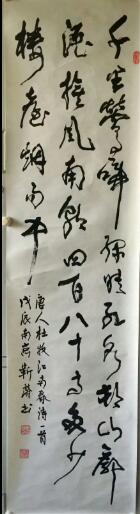 千里鶯啼绿映红水村山郭
酒旗風南朝四百八十寺多少
樓臺烟雨中
唐人杜牧江南春诗一首
戊辰南窗靳书